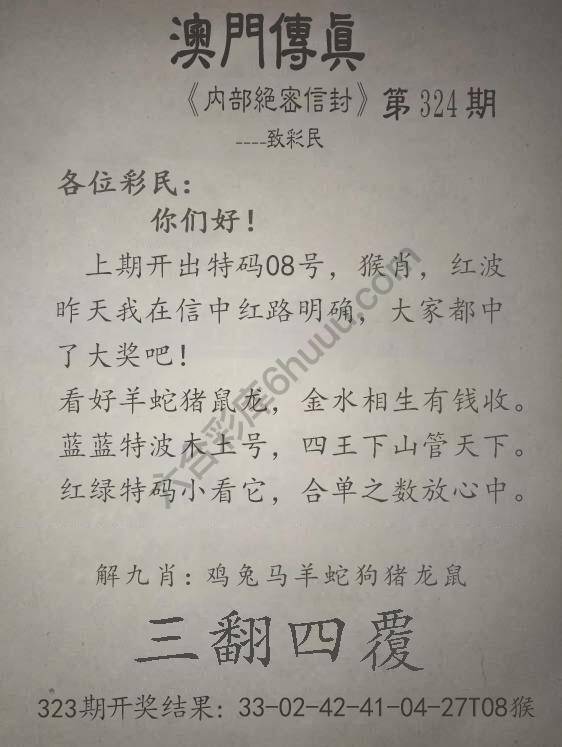 澳門傳眞
《内部絕密信封》第324期
----致彩民
各位彩民：
你们好！
上期开出特码08号，猴肖，红波
昨天我在信中红路明确，大家都中
了大奖吧！
看好羊蛇猪鼠龙，金水相生有钱收。
蓝蓝特波木土号，四王下山管天下。
红绿特码小看它，合单之数放心中。
六合彩库6huuu.com
解九肖：鸡兔马羊蛇狗猪龙鼠
三翻四覆
323期开奖结果：33-02-42-41-04-27T08猴